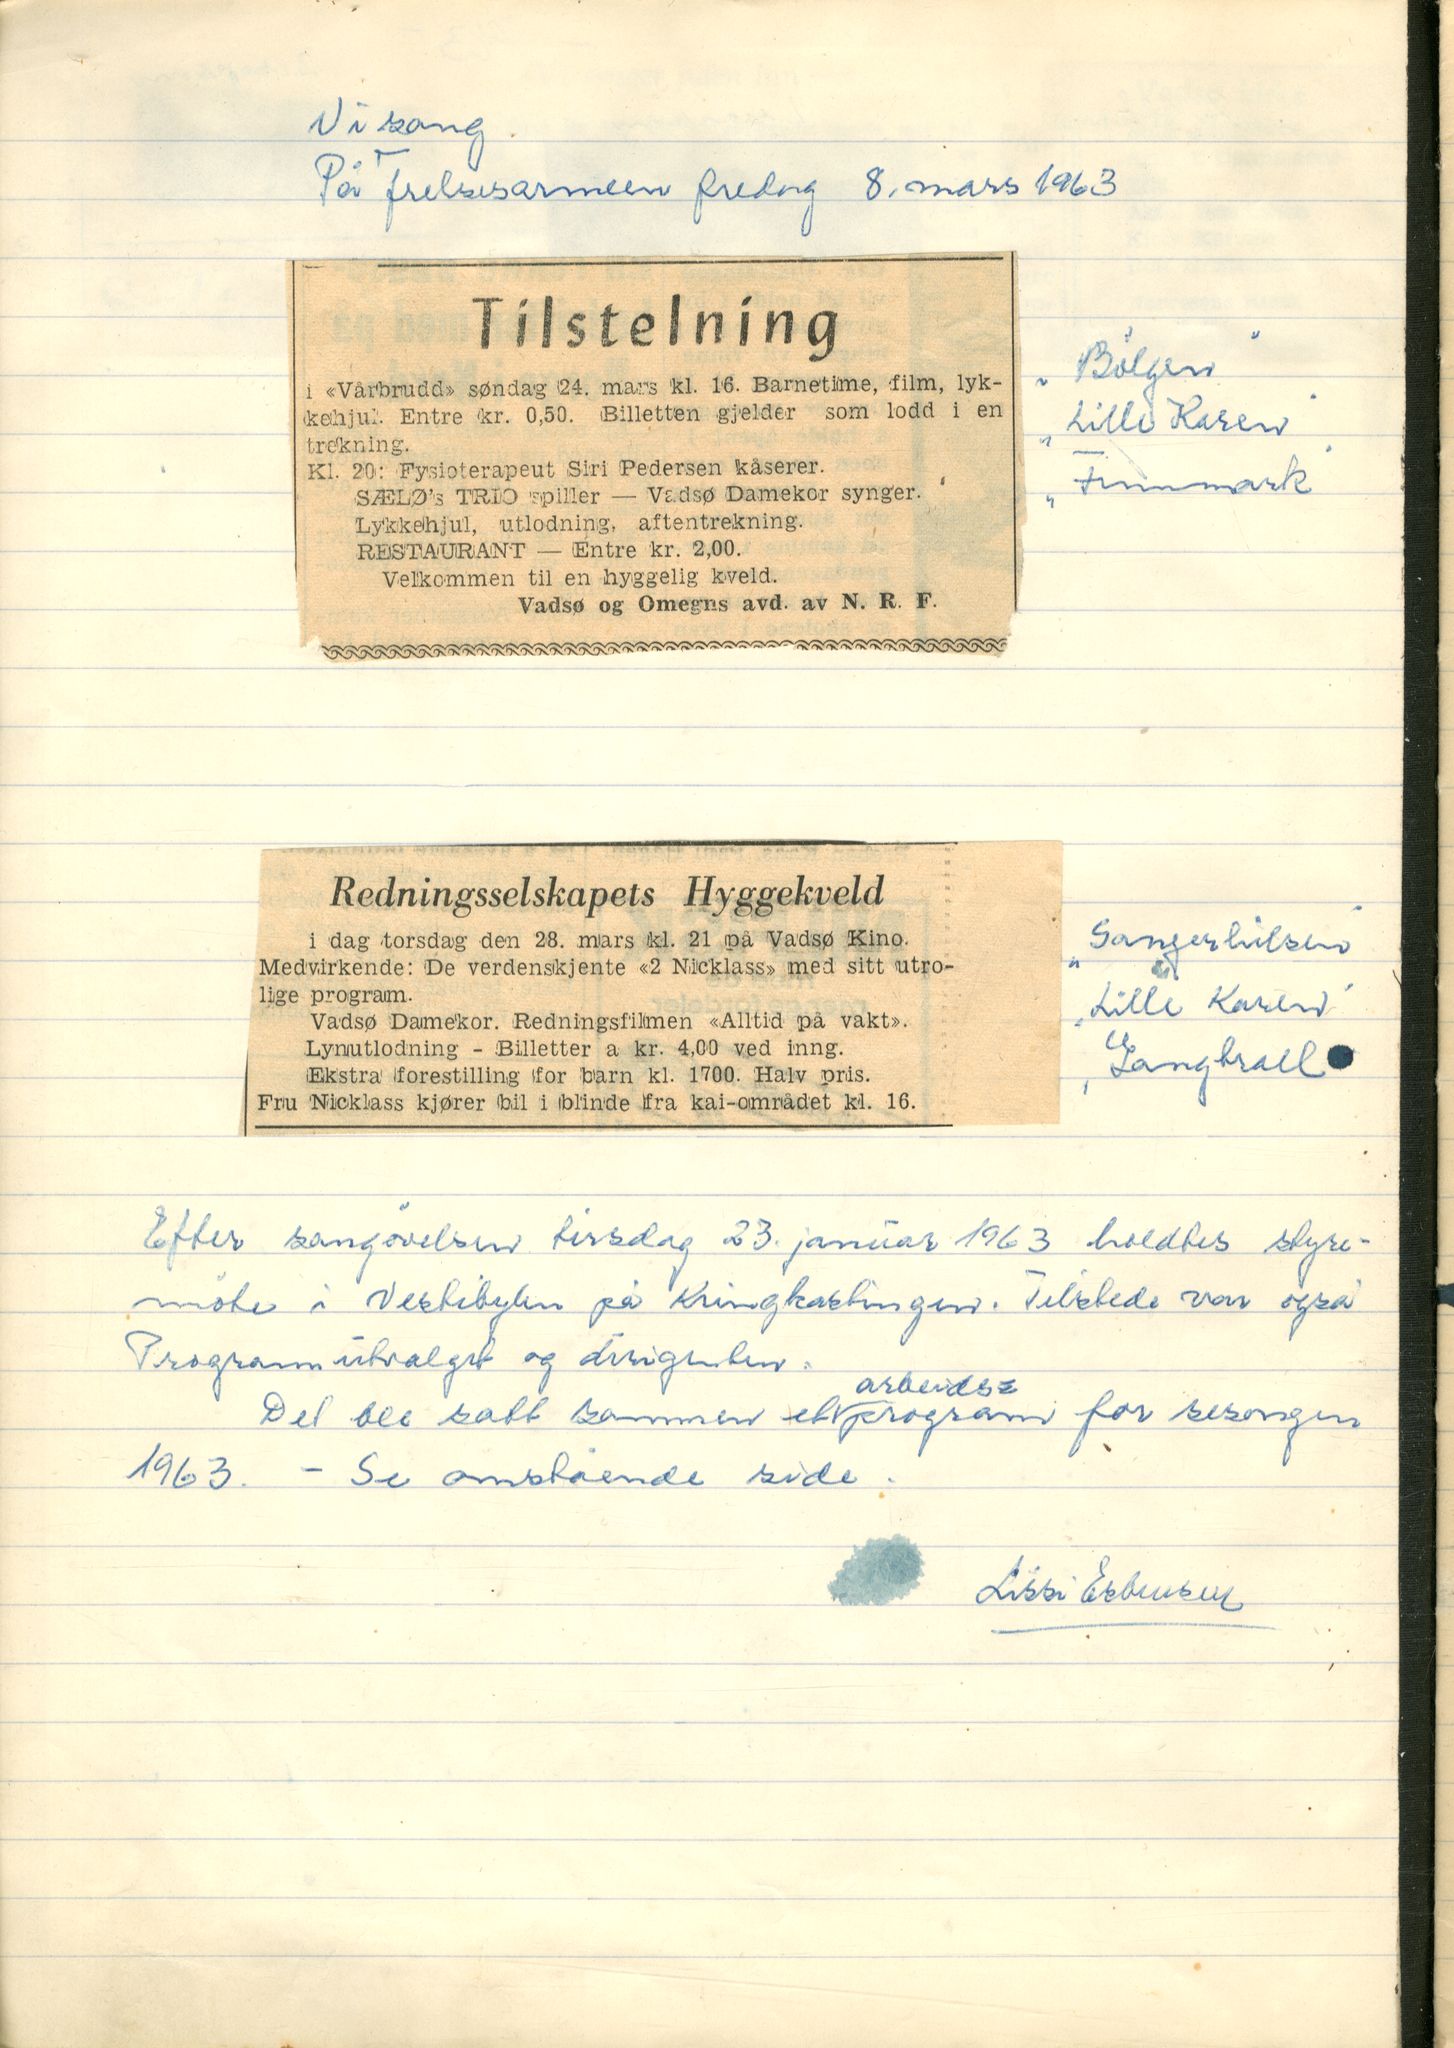 Vi sang
På Frelsesarmeen fredag 8. mars 1963
Tilstelning
i «Vårbrudd» søndag 24. mars kl. 16. Barnetime, film, lyk-
kehjul. Entre kr. 0,50. Billetten gjelder som lodd i en
trekning.
Kl. 20: Fysioterapeut Siri Pedersen kåserer.
SÆLØ's TRIO spiller — Vadsø Damekor synger.
Lykkehjul, utlodning, aftentrekning.
RESTAURANT — Entre kr. 2,00.
Velkommen til en hyggelig kveld.
Vadsø og Omegns avd. av N. R. F.
„Bölgen"
„Lille Karen"
„Finnmark"
Redningsselskapets Hyggekveld
i dag torsdag den 28. mars kl. 21 på Vadsø Kino.
Medvirkende: De verdenskjente «2 Nicklass» med sitt utro-
lige program.
Vadsø Damekor. Redningsfilmen «Alltid på vakt».
Lynutlodning - Billetter a kr. 4,00 ved inng.
Ekstra forestilling for barn kl. 1700. Halv pris.
Fru Nicklass kjører bil i blinde fra kai-området kl. 16.
„Sangerhilsen"
„Lille Karen"
Efter sangövelsen tirsdag 23. januar 1963 holdtes styre-
möte i Vestibylen på Kringkastingen. Tilstede var også
Programutvalget og dirigenten.
Det ble satt sammen et arbeids program for sesongen
1963. - Se omstående side.
Lissi Esbensen